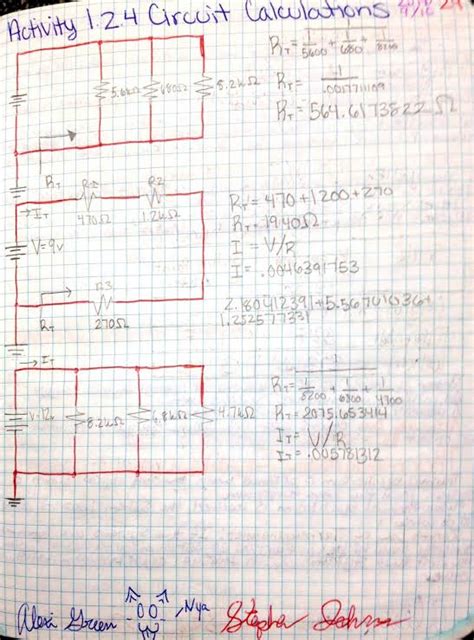 Activity 1.2.4 Circuit Calculations
5.6kΩ 680Ω 8.2kΩ
RT
RT = 1/5600 + 1/680 + 1/8200
RT = 1/.001771109
RT = 564.6173822 Ω
IT R1 R2
470Ω 1.2kΩ
V=9v
R3
RT 270Ω
RT = 470+1200+270
RT = 1940Ω
I = V/R
I = .0046391753
2.180412391+5.567010364
1.252577331
IT
V=12v 8.2kΩ 6.8kΩ 4.7kΩ
RT = 1/8200 + 1/6800 + 1/4700
RT = 2075.653414
IT = V/R
IT = .005781312
Alexi Green Nya